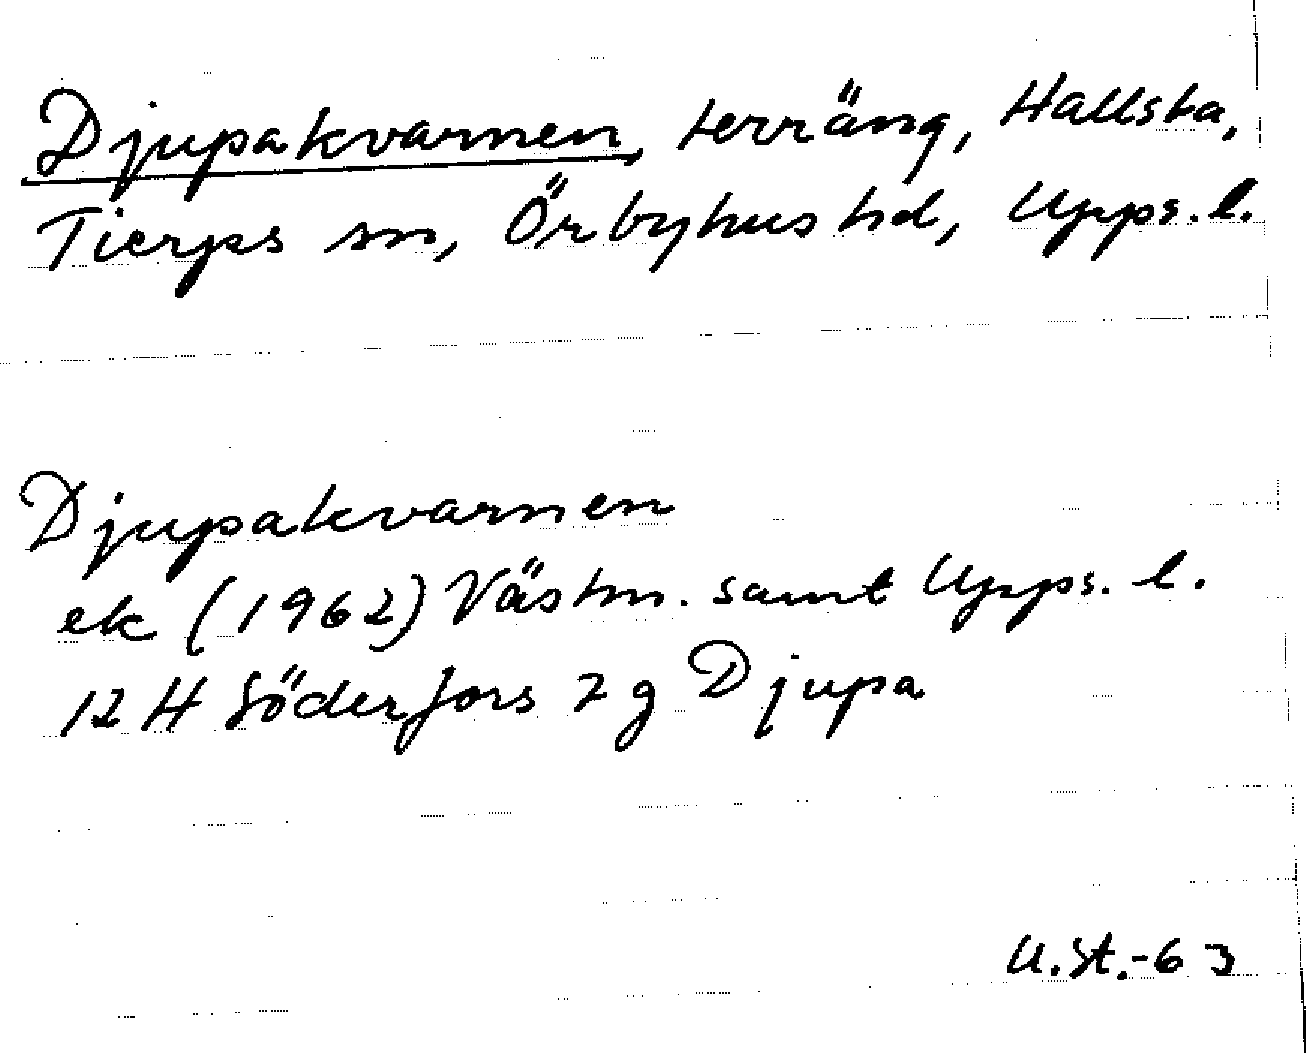 Djupakvarnen, terräng, Hallsta,
Tierps sn, Örbyhus hd, Upps. l.
Djupakvarnen
ek (1962) Västm. samt Upps. l.
12 H Söderfors 2 g Djupa
U.St.-63